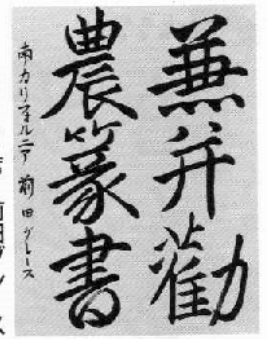 兼并勸
農篆書
南カリフォルニア 前田グレース